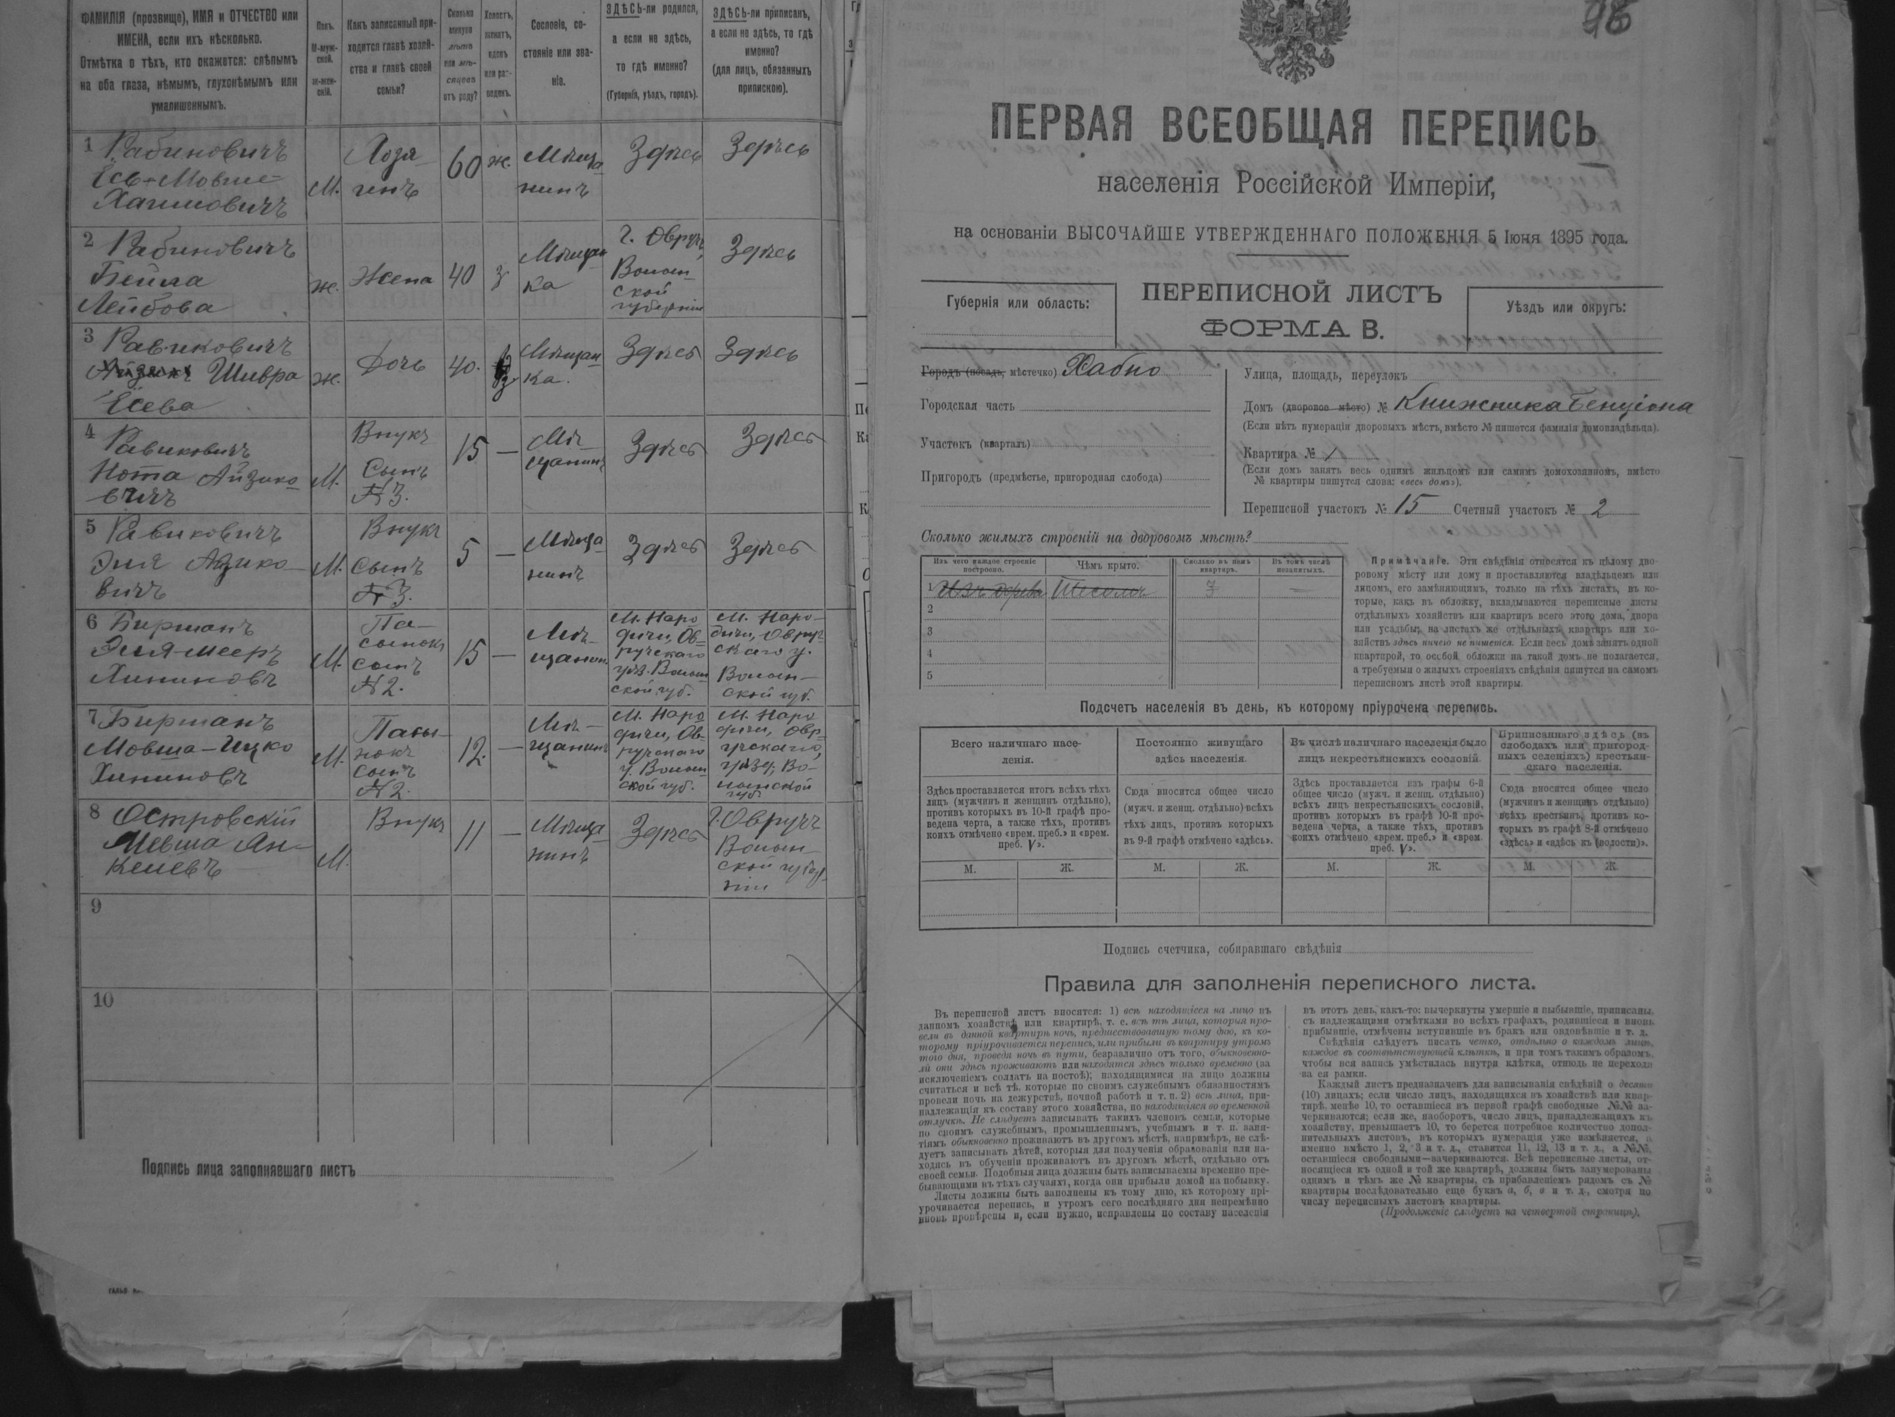 ФАМИЛІЯ (прозвище), ИМЯ и ОТЧЕСТВО или
ИМЕНА, если ихъ нѣсколько.
Отмѣтка о тѣхъ, кто окажется: слѣпымъ
на оба глаза, нѣмымъ, глухонѣмымъ или
умалишеннымъ.
Полъ.
М-муж-
ской.
Ж-жен-
скій.
Какъ записанный при-
ходится главѣ хозяй-
ства и главѣ своей
семьи?
Сколько
минуло
лѣтъ
или мѣ-
сяцевъ
отъ роду?
Холостъ,
женатъ,
вдовъ
или раз-
веденъ.
Сословіе, со-
стояніе или зва-
ніе.
ЗДѢСЬ-ли родился,
а если не здѣсь,
то гдѣ именно?
(Губернія, уѣздъ, городъ).
ЗДѢСЬ-ли приписанъ,
а если не здѣсь, то гдѣ
именно?
(для лицъ, обязанныхъ
припискою).
1 Рабиновичъ
Есь-Мовше-
Хаимовичъ
М.
Хозя
инъ
60
ж.
Мѣща
нинъ
Здѣсь
Здѣсь
2 Рабиновичъ
Бейла
Лейбова
ж.
Жена
40
з
Мѣщан
ка
г. Овручъ,
Волын-
ской
губерніи
Здѣсь
3 Равиковичъ
Шивра
Есева
ж.
Дочь
40.
Мѣщан
ка.
Здѣсь
Здѣсь
4 Равиковичъ
Нота Айзико-
вичъ
М.
Внукъ
Сынъ
№3.
15
—
Мѣ-
щанинъ
Здѣсь
Здѣсь
5 Равиковичъ
Эля Азико-
вичъ
М.
Внукъ
Сынъ
№3.
5
—
Мѣща
нинъ
Здѣсь
Здѣсь
6 Бирманъ
Эля-Мееръ
Хининовъ
М.
Па-
сынокъ
сынъ
№2.
15
—
Мѣ-
щанинъ
М. Наро
дичи, Ов-
ручскаго
уѣз. Волын
ской губ.
М. Наро-
дичи, Овруч-
скаго у.
Волын-
ской губ.
7 Бирманъ
Мовша-Ицко
Хининовъ
М.
Пасы-
нокъ
сынъ
№2.
12.
—
Мѣ-
щанинъ
М. Наро
дичи, Ов-
ручскаго
у. Волын
ской губ.
М. Наро
дичи, Овр-
учскаго,
уѣзд, Во-
лынской
губ
8 Островскій
Мевша Ан-
келевъ
М.
Внукъ
11
—
Мѣща
нинъ
Здѣсь
г. Овручъ
Волын-
ской губер
ніи
9
10
Подпись лица заполнявшего листъ
96
ПЕРВАЯ ВСЕОБЩАЯ ПЕРЕПИСЬ
населенія Россійской Имперіи,
на основаніи ВЫСОЧАЙШЕ УТВЕРЖДЕННАГО ПОЛОЖЕНІЯ 5 Іюня 1895 года.
Губернія или область:
ПЕРЕПИСНОЙ ЛИСТЪ
ФОРМА В.
Уѣздъ или округъ:
Городъ (посадъ, мѣстечко) Хабно
Городская часть
Участокъ (кварталъ)
Пригородъ (предмѣстье, пригородная слобода)
Улица, площадь, переулокъ
Домъ (дворовое мѣсто) № Книжника Бенціона
(Если нѣтъ нумераціи дворовыхъ мѣстъ, вмѣсто № пишется фамилія домовладѣльца).
Квартира № 1
(Если домъ занятъ весь однимъ жильцомъ или самимъ домохозяиномъ, вмѣсто
№ квартиры пишутся слова: «весь домъ»).
Переписной участокъ № 15 Счетный участокъ № 2
Сколько жилыхъ строеній на дворовомъ мѣстѣ?
Изъ чего каждое строеніе
построено.
Чѣмъ крыто.
Сколько въ немъ
квартиръ.
Въ томъ числѣ
незанятыхъ.
1 Изъ дерева Тесомъ 3 —
2
3
4
5
Примѣчаніе. Эти свѣдѣнія относятся къ цѣлому дво-
ровому мѣсту или дому и проставляются владѣльцемъ или
лицомъ, его замѣняющимъ, только на тѣхъ листахъ, въ ко-
торые, какъ въ обложку, вкладываются переписные листы
отдѣльныхъ хозяйствъ или квартиръ всего этого дома, двора
или усадьбы; на листахъ же отдѣльныхъ квартиръ или хо-
зяйствъ здѣсь ничего не пишется. Если весь домъ занятъ одной
квартирой, то особой обложки на такой домъ не полагается,
а требуемыя о жилыхъ строеніяхъ свѣдѣнія пишутся на самомъ
переписномъ листѣ этой квартиры.
Подсчетъ населенія въ день, къ которому пріурочена перепись.
Всего наличнаго насе-
ленія.
Постоянно живущаго
здѣсь населенія.
Въ числѣ наличнаго населенія было
лицъ некрестьянскихъ сословій.
Приписаннаго здѣсь (въ
слободахъ или пригород-
ныхъ селеніяхъ) крестьян-
скаго населенія.
Здѣсь проставляется итогъ всѣхъ тѣхъ
лицъ (мужчинъ и женщинъ отдѣльно),
противъ которыхъ въ 10-й графѣ про-
ведена черта, а также тѣхъ, противъ
коихъ отмѣчено «врем. преб.» и «врем.
преб. V».
Сюда вносится общее число
(мужч. и женщ. отдѣльно) всѣхъ
тѣхъ лицъ, противъ которыхъ
въ 9-й графѣ отмѣчено «здѣсь».
Здѣсь проставляется изъ графы 6-й
общее число (мужч. и женщ. отдѣльно)
всѣхъ лицъ некрестьянскихъ сословій,
противъ которыхъ въ графѣ 10-й про-
ведена черта, а также тѣхъ, противъ
коихъ отмѣчено «врем. преб.» и «врем.
преб. V».
Сюда вносится общее число
(мужчинъ и женщинъ отдѣльно)
всѣхъ крестьянъ, противъ ко-
торыхъ въ графѣ 8-й отмѣчено
«здѣсь» и «здѣсь къ (волости)».
М. Ж. М. Ж. М. Ж. М. Ж.
Подпись счетчика, собиравшаго свѣдѣнія
Правила для заполненія переписного листа.
Въ переписной листъ вносятся: 1) всѣ находящіеся на лицо въ
данномъ хозяйствѣ или квартирѣ, т. е. всѣ тѣ лица, которыя про-
вели въ данной квартирѣ ночь, предшествовавшую тому дню, къ ко-
торому пріурочивается перепись, или прибыли въ квартиру утромъ
того дня, проведя ночь въ пути, безразлично отъ того, обыкновенно-
ли они здѣсь проживаютъ или находятся здѣсь только временно (за
исключеніемъ солдатъ на постоѣ); находящимися на лицо должны
считаться и всѣ тѣ, которые по своимъ служебнымъ обязанностямъ
провели ночь на дежурствѣ, ночной работѣ и т. п. 2) всѣ лица, при-
надлежащія къ составу этого хозяйства, но находящіяся во временной
отлучкѣ. Не слѣдуетъ записывать такихъ членовъ семьи, которые
по своимъ служебнымъ, промышленнымъ, учебнымъ и т. п. заня-
тіямъ обыкновенно проживаютъ въ другомъ мѣстѣ, напримѣръ, не слѣ-
дуетъ записывать дѣтей, которыя для полученія образованія или на-
ходясь въ обученіи проживаютъ въ другомъ мѣстѣ, отдѣльно отъ
своей семьи. Подобныя лица должны быть записываемы временно пре-
бывающими въ тѣхъ случаяхъ, когда они прибыли домой на побывку.
Листы должны быть заполнены къ тому дню, къ которому прі-
урочивается перепись, и утромъ сего послѣдняго дня непремѣнно
вновь провѣрены и, если нужно, исправлены по составу населенія
въ этотъ день, какъ-то: вычеркнуты умершіе и выбывшіе, приписаны,
съ надлежащими отмѣтками во всѣхъ графахъ, родившіеся и вновь
прибывшіе, отмѣчены вступившіе въ бракъ или овдовѣвшіе и т. д.
Свѣдѣнія слѣдуетъ писать четко, отдѣльно о каждомъ лицѣ,
каждое въ соотвѣтствующей клѣткѣ, и при томъ такимъ образомъ,
чтобы вся запись умѣстилась внутри клѣтки, отнюдь не переходя
за ея рамки.
Каждый листъ предназначенъ для записыванія свѣдѣній о десяти
(10) лицахъ; если число лицъ, находящихся въ хозяйствѣ или квар-
тирѣ, менѣе 10, то оставшіеся въ первой графѣ свободные №№ за-
черкиваются; если же, наоборотъ, число лицъ, принадлежащихъ къ
хозяйству, превышаетъ 10, то берется потребное количество допол-
нительныхъ листовъ, въ которыхъ нумерація уже измѣняется, а
именно вмѣсто 1, 2, 3 и т. д., ставится 11, 12, 13 и т. д., а №№,
оставшіеся свободными—зачеркиваются. Всѣ переписные листы, от-
носящіеся къ одной и той же квартирѣ, должны быть занумерованы
однимъ и тѣмъ же № квартиры, съ прибавленіемъ рядомъ съ №
квартиры послѣдовательно еще буквъ а, б, в и т. д., смотря по
числу переписныхъ листовъ квартиры.
(Продолженіе слѣдуетъ на четвертой страницѣ).